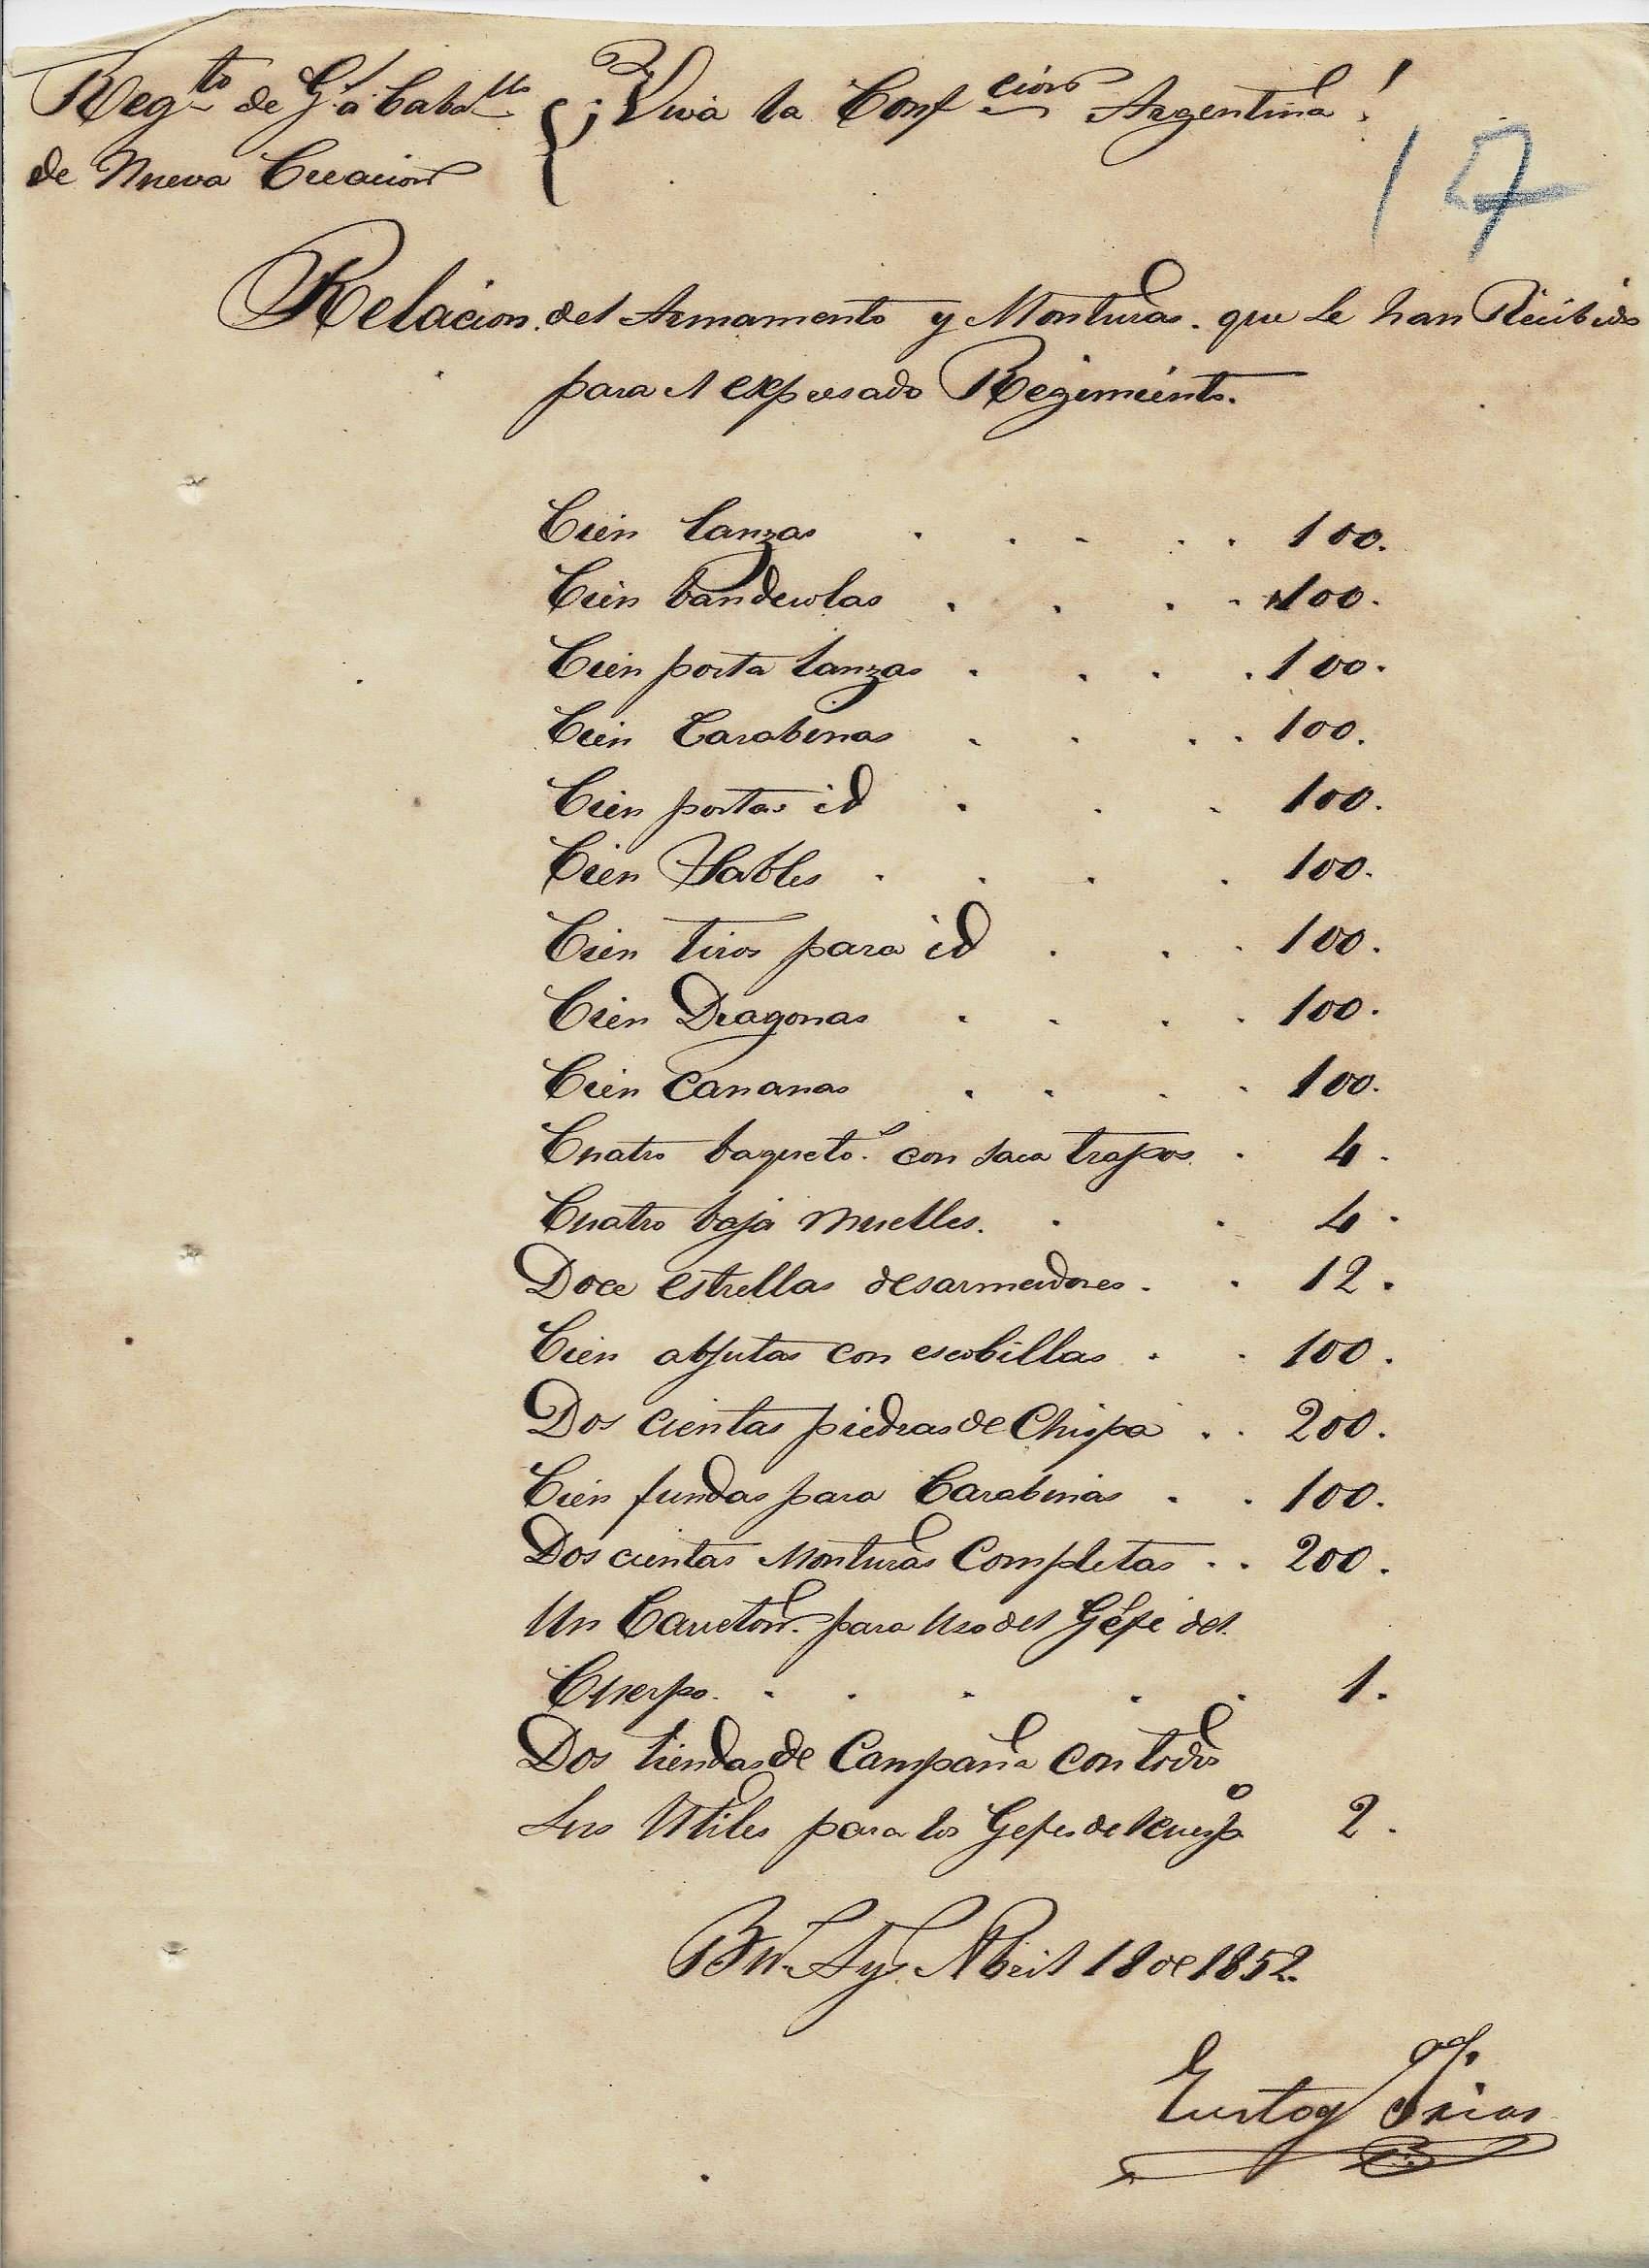 Reg.to de G.s a Caba.llo
de Nueva Creacion
¡Viva la Conf.cion Argentina!
17
Relacion del Armamento y Monturas que se han Recibido
para el expresado Regimiento.
Cien lanzas . . . . . 100.
Cien banderolas . . . . 100.
Cien porta lanzas . . . . 100.
Cien Carabinas . . . . 100.
Cien portas id . . . 100.
Cien Sables . . . . 100.
Cien tiros para id . . . 100.
Cien Dragonas . . . . 100.
Cien Cananas . . . . 100.
Cuatro baquet.s con saca trapos . 4.
Cuatro baja muelles. . . 4.
Doce estrellas desarmadores . . 12.
Cien abjutas con escobillas . . 100.
Dos cientas piedras de Chispa . . 200.
Cien fundas para Carabinas . . 100.
Dos cientas Monturas Completas . . 200.
Un Carreton para Uso del Géfe del
Cuerpo. . . . . . 1.
Dos tiendas de Campaña con todos
sus Utiles para los Gefes del cuerpo 2.
Bu.s Ay.s Abril 18 de 1852.
Eustoq.o Frias